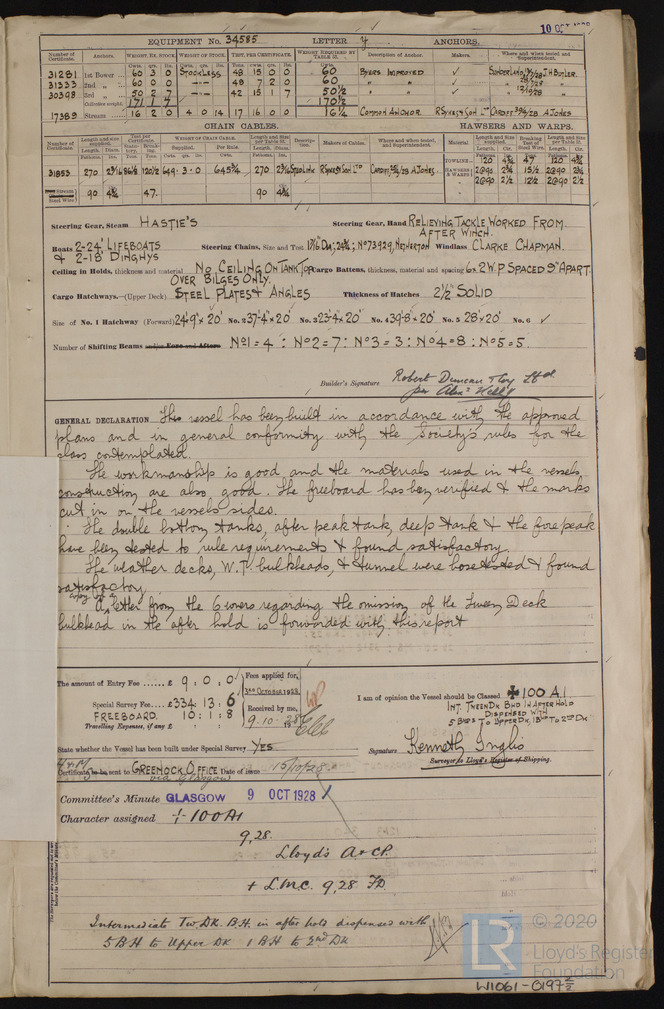 10 OCT 1928
EQUIPMENT No. 34585 LETTER y ANCHORS.
Number of Certificate. Anchors. WEIGHT, EX. STOCK. WEIGHT OF STOCK. TEST, PER CERTIFICATE. WEIGHT REQUIRED BY TABLE 31. Description of Anchor. Makers. Where and when tested and Superintendent.
31281 1st Bower 60 3 0 STOCKLESS 48 15 0 0 60 BYERS IMPROVED ✓ SUNDERLAND J H BUTLER.
31333 2nd „ 60 0 0 – – 48 7 2 0 60 „ „ ✓
30398 3rd „ 50 2 7 – – 42 15 1 7 50½ „ „ ✓
Collective weight. 171 1 7 170½
17389 Stream 16 2 0 4 0 14 17 16 0 0 16¼ COMMON ANCHOR R SYKES & SON LTD CARDIFF A JONES
CHAIN CABLES. HAWSERS AND WARPS.
Number of Certificate. Length and size supplied. Test per Certificate. WEIGHT OF CHAIN CABLE. Length and Size per Table 31. Description. Makers of Cables. Where and when tested, and Superintendent. Material Length and size supplied. Breaking Test of Steel Wire. Length and Size per Table 31.
31853 270 2 3/16 86½ 120½ 649 . 3 . 0 645¾ 270 2 3/16 STUD LINK R SYKES & SON LTD CARDIFF A JONES
TOWLINE 120 4¾ 47 120 4¾
HAWSERS & WARPS 2@90 2¾ 15½ 2@90 2¾
„ 2@90 2½ 12½ 2@90 2½
Stream Steel Wire 90 4¾ 47. 90 4¾
Steering Gear, Steam HASTIE'S Steering Gear, Hand RELIEVING TACKLE WORKED FROM
AFTER WINCH.
Boats 2-24' LIFEBOATS Steering Chains, Size and Test 1 7/16" DIA; 24¾; No 73929, NETHERTON Windlass CLARKE CHAPMAN.
& 2-18' DINGHYS
Ceiling in Holds, thickness and material NO CEILING ON TANK TOP Cargo Battens, thickness, material and spacing 6 x 2 W.P. SPACED 9" APART.
OVER BILGES ONLY.
Cargo Hatchways.—(Upper Deck) STEEL PLATES & ANGLES Thickness of Hatches 2½" SOLID
Size of No. 1 Hatchway (Forward) 24'-9" x 20' No. 2 37'-4" x 20' No. 3 23'-4 x 20' No. 4 39'-8 x 20' No. 5 28' x 20' No. 6 ✓
Number of Shifting Beams and/or Fore and Afters No 1 = 4 : No 2 = 7 : No 3 = 3 : No 4 = 8 : No 5 = 5.
Builder's Signature Robert Duncan & Coy Ltd
per Alexr Kell
GENERAL DECLARATION This vessel has been built in accordance with the approved
plans and in general conformity with the Society's rules for the
class contemplated.
The workmanship is good and the materials used in the vessels
construction are also good. The freeboard has been verified & the marks
cut in on the vessels sides.
The double bottom tanks, after peak tank, deep tank & the fore peak
have been tested to rule requirements & found satisfactory.
The weather decks, W.T. bulkheads, & tunnel were hose tested & found
satisfactory.
copy of a
A letter from the Owners regarding the omission of the Tween Deck
bulkhead in the after hold is forwarded with this report
The amount of Entry Fee ...... £ 9 : 0 : 0
Special Survey Fee £334 : 13 : 6
FREEBOARD. 10 : 1 : 8
Travelling Expenses, if any £
Fees applied for, 3RD OCTOBER 1928
Received by me, 9-10-28
I am of opinion the Vessel should be Classed ✠ 100 A.1.
INT. TWEEN DK BHD IN AFTER HOLD
DISPENSED WITH
5 BHDS TO UPPER DK, 1 BHD TO 2ND DK
State whether the Vessel has been built under Special Survey YES
Signature Kenneth Inglis
Surveyor to Lloyd's Register of Shipping.
Certificate to be sent to GREENOCK OFFICE Date of issue 15/10/28
via Glasgow
Committee's Minute GLASGOW 9 OCT 1928
Character assigned + 100A1
9,28.
Lloyd's A & CP.
+ L.M.C. 9,28 FD.
Intermediate Tw DK. B.H. in after hold dispensed with
5 BH to Upper DK 1 BH to 2nd DK
LR
© 2020
Lloyd's Register
Foundation
W1061-0197 2/2